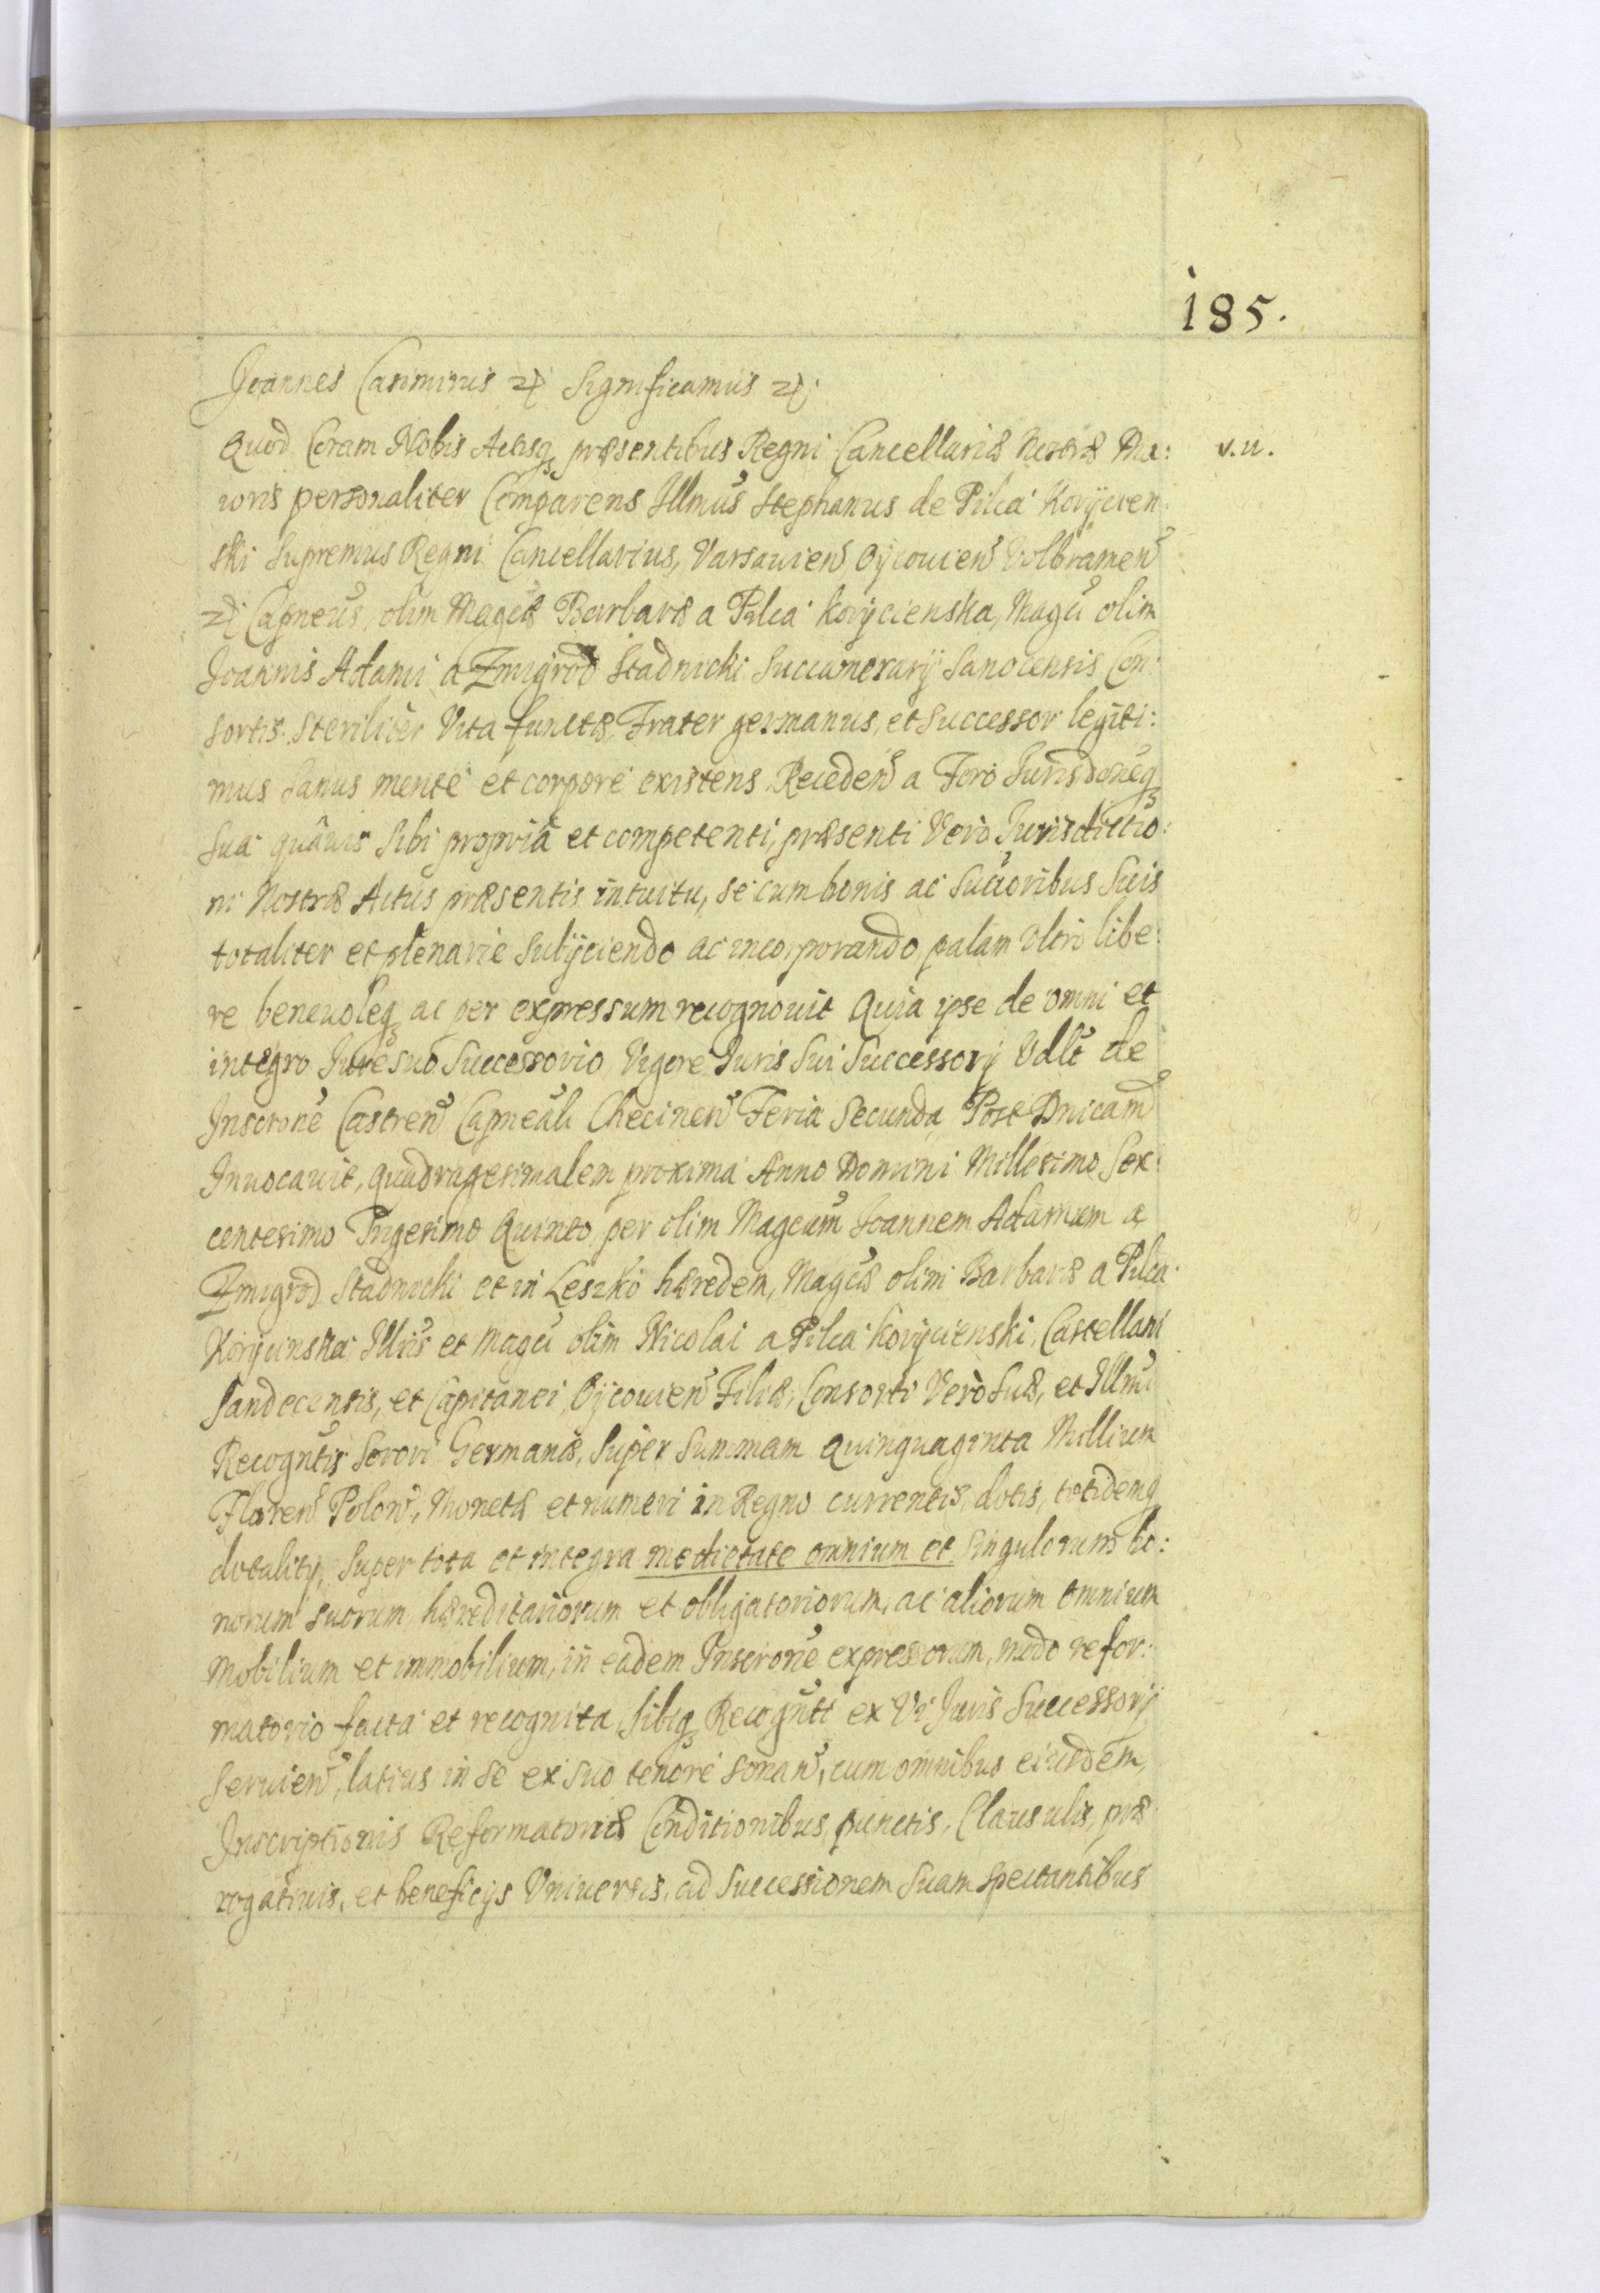 185.
Joannes Casimirus etc Significamus etc.
Quod Coram Nobis Actisq præsentibus Regni Cancellariæ Nostræ Ma: v. u.
ioris personaliter Comparens Illmus Stephanus de Pilca Koryćien
ski Supremus Regni Cancellarius, Varsauien Oycouien Wolbramen
etc Capneus, olim Magcæ Barbaræ a Pilca Korycienska, Magci olim
Joannis Adami a Zmigrod Stadnicki Succamerarij Sanocensis Con:
sortis steriliter Vita functæ, Frater germanus, et Successor legiti:
mus sanus mente et corpore existens Receden a Foro Jurisdoneq
sua quâuis sibi propriâ et competenti, præsenti Vero Jurisdictio:
ni Nostræ Actus præsentis intuitu, se cum bonis ac Succoribus suis
totaliter et plenarie subijciendo ac incorporando palam Vltro libe:
re beneuoleq ac per expressum recognouit Quia ipse de omni et
integro Jure suo Successorio, Vigore Juris sui Successorij Vdlt de
Inscrone Castren Capneali Checinen Feria Secunda Post Dnicam
Inuocauit, quadragesimalem proxima Anno Domini Millesimo Sex:
centesimo Trigesimo Quinto per olim Magcum Joannem Adamum a
Zmigrod Stadnicki et in Leszko hæredem, Magcæ olim Barbaræ a Pilca
Korycinska Illris et Magci olim Nicolai a Pilca Korycienski, Castellani
Sandecensis, et Capitanei Oycouien Filiæ, Consorti Vero Suæ, et Illmi
Recogntis Sorori Germanæ, super summam Quinquaginta Millium
Floren Polon, Monetæ et numeri in Regno currentis, dotis, totidemq
dotality, super tota et integra medietate omnium et singulorum bo:
norum suorum hæreditariorum et obligatoriorum, ac aliorum omnium
Mobilium et immobilium, in eadem Inscrone expressorum, modo refor:
matorio facta et recognita, sibiq Recogntti ex Vi Juris Successorij
seruien, latius in se ex suo tenore sonan, cum omnibus eiusdem,
Inscriptionis Reformatoriæ Conditionibus, punctis, Clausulis, præ
rogatiuis, et beneficijs Vniuersis, ad Successionem Suam spectantibus